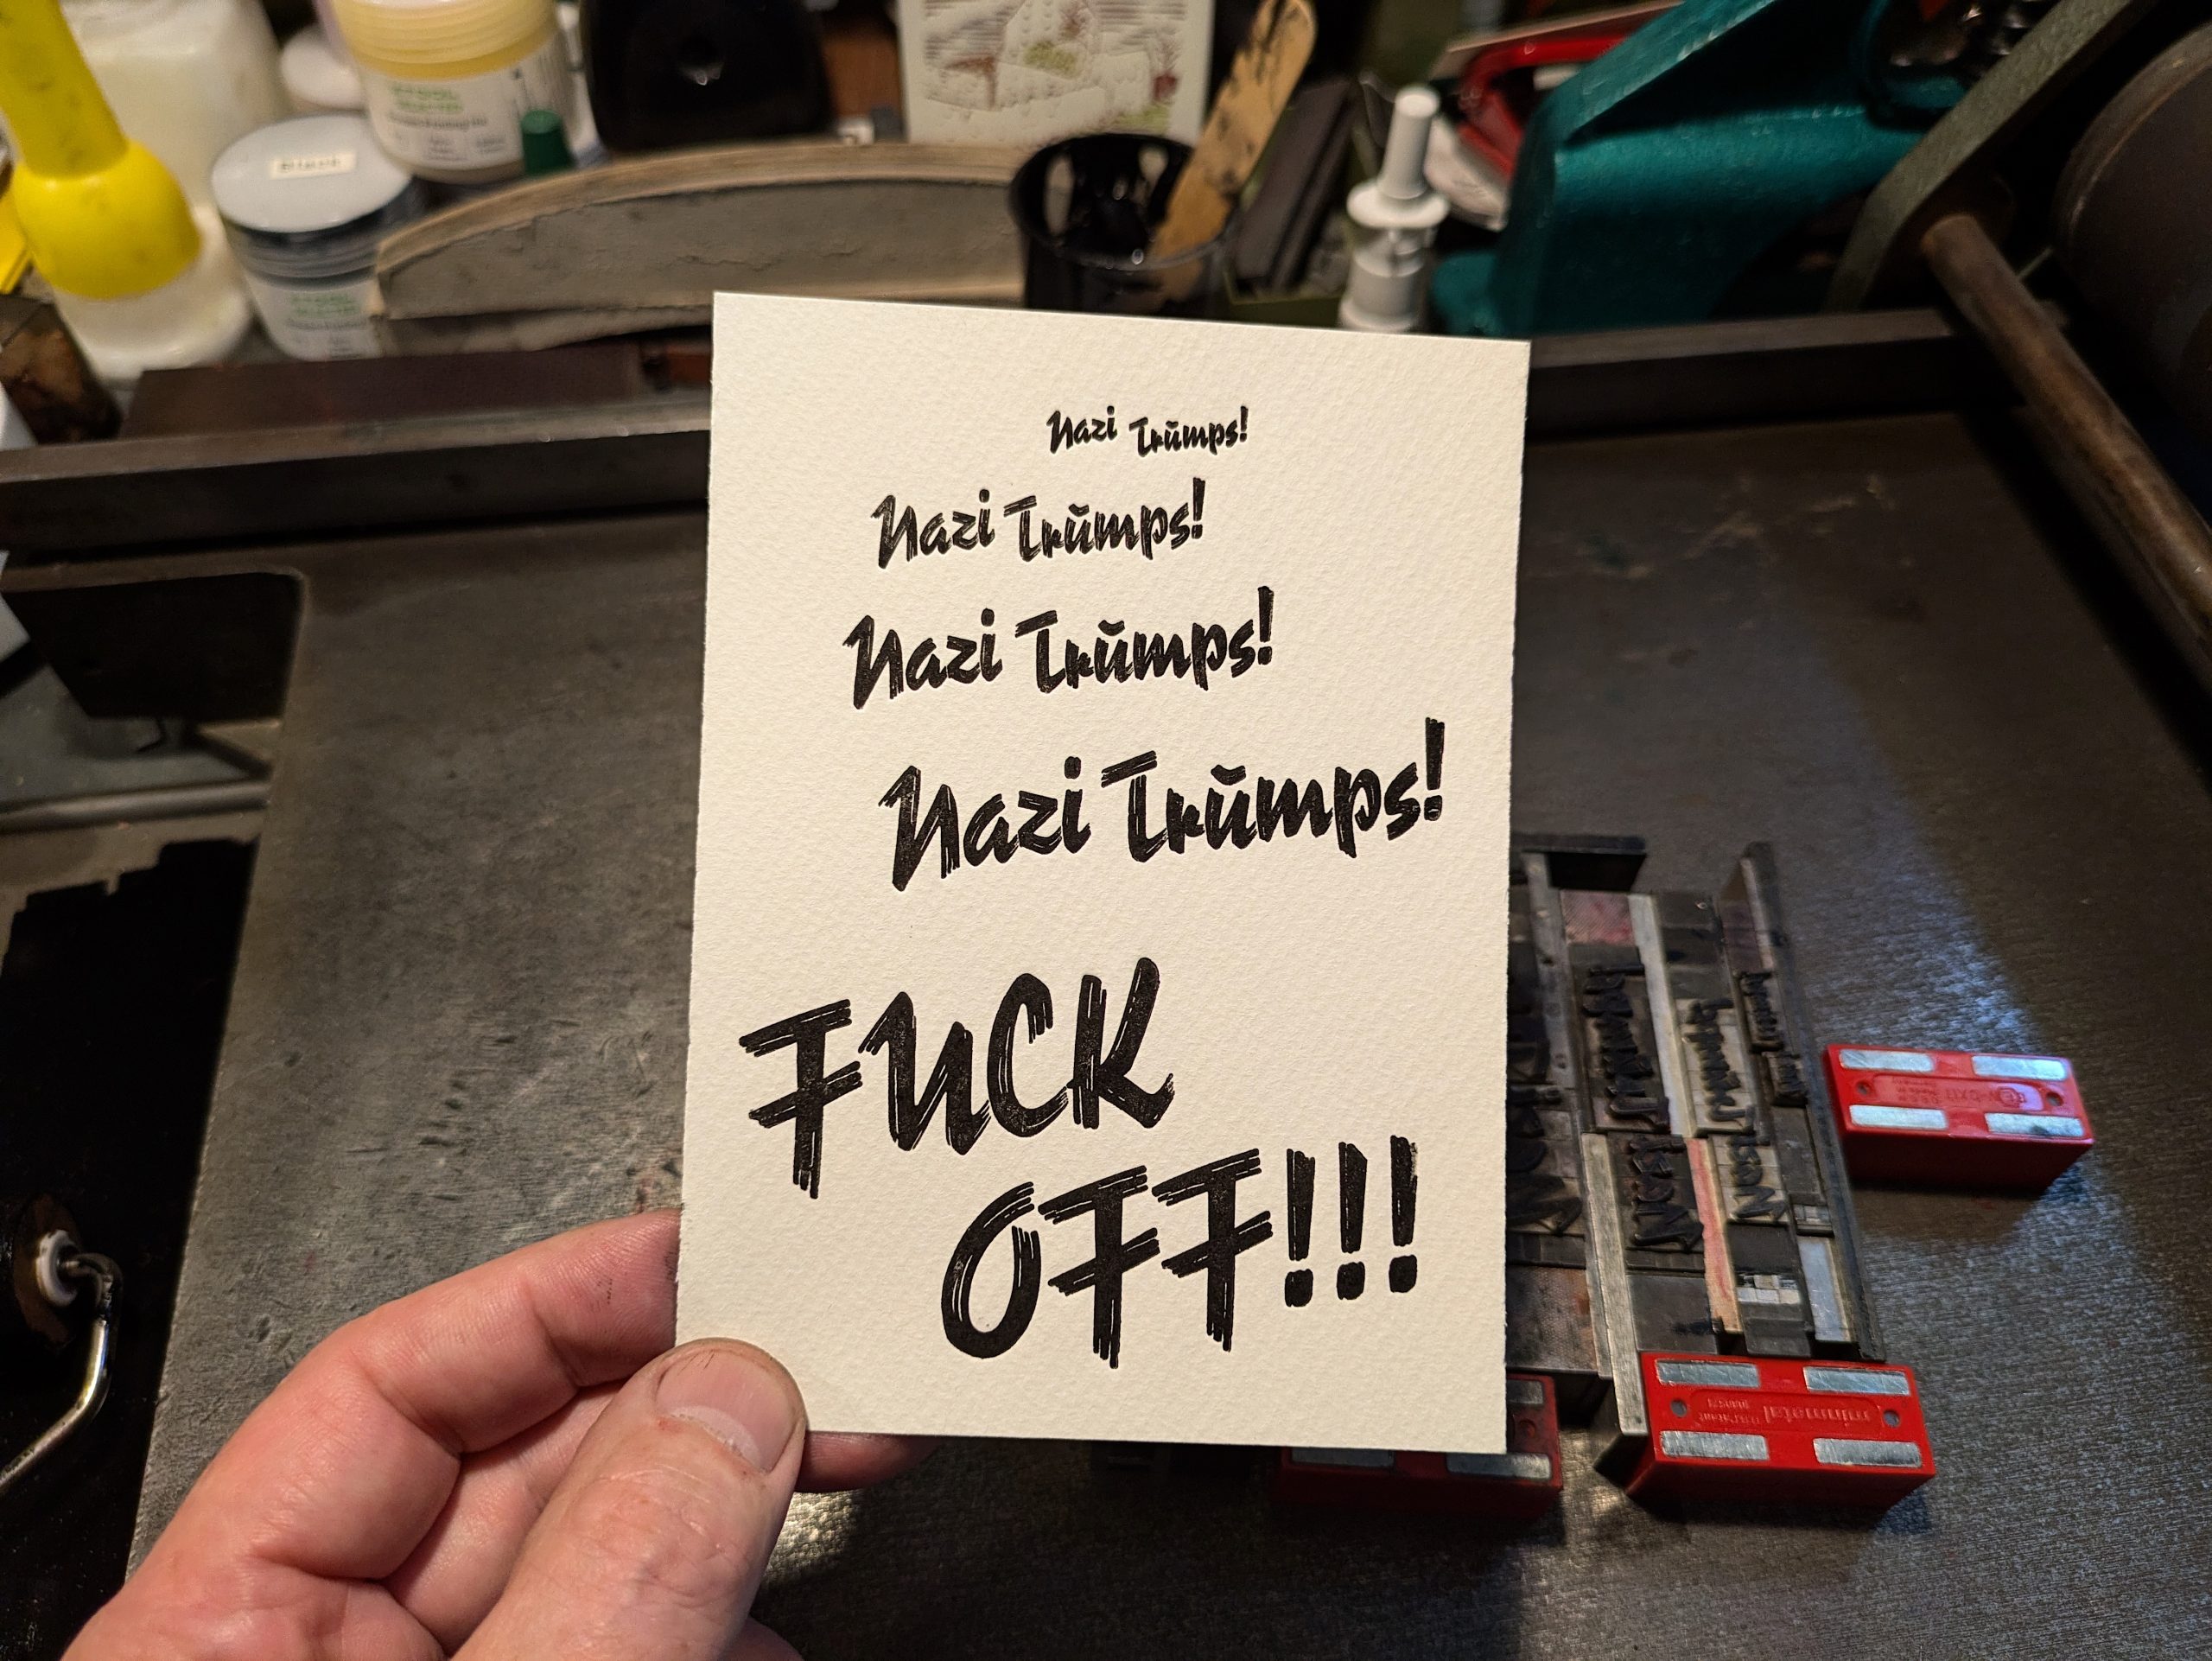 Black
Nazi Trŭmps!
Nazi Trŭmps!
Nazi Trŭmps!
Nazi Trŭmps!
FUCK
OFF!!!
minmetal